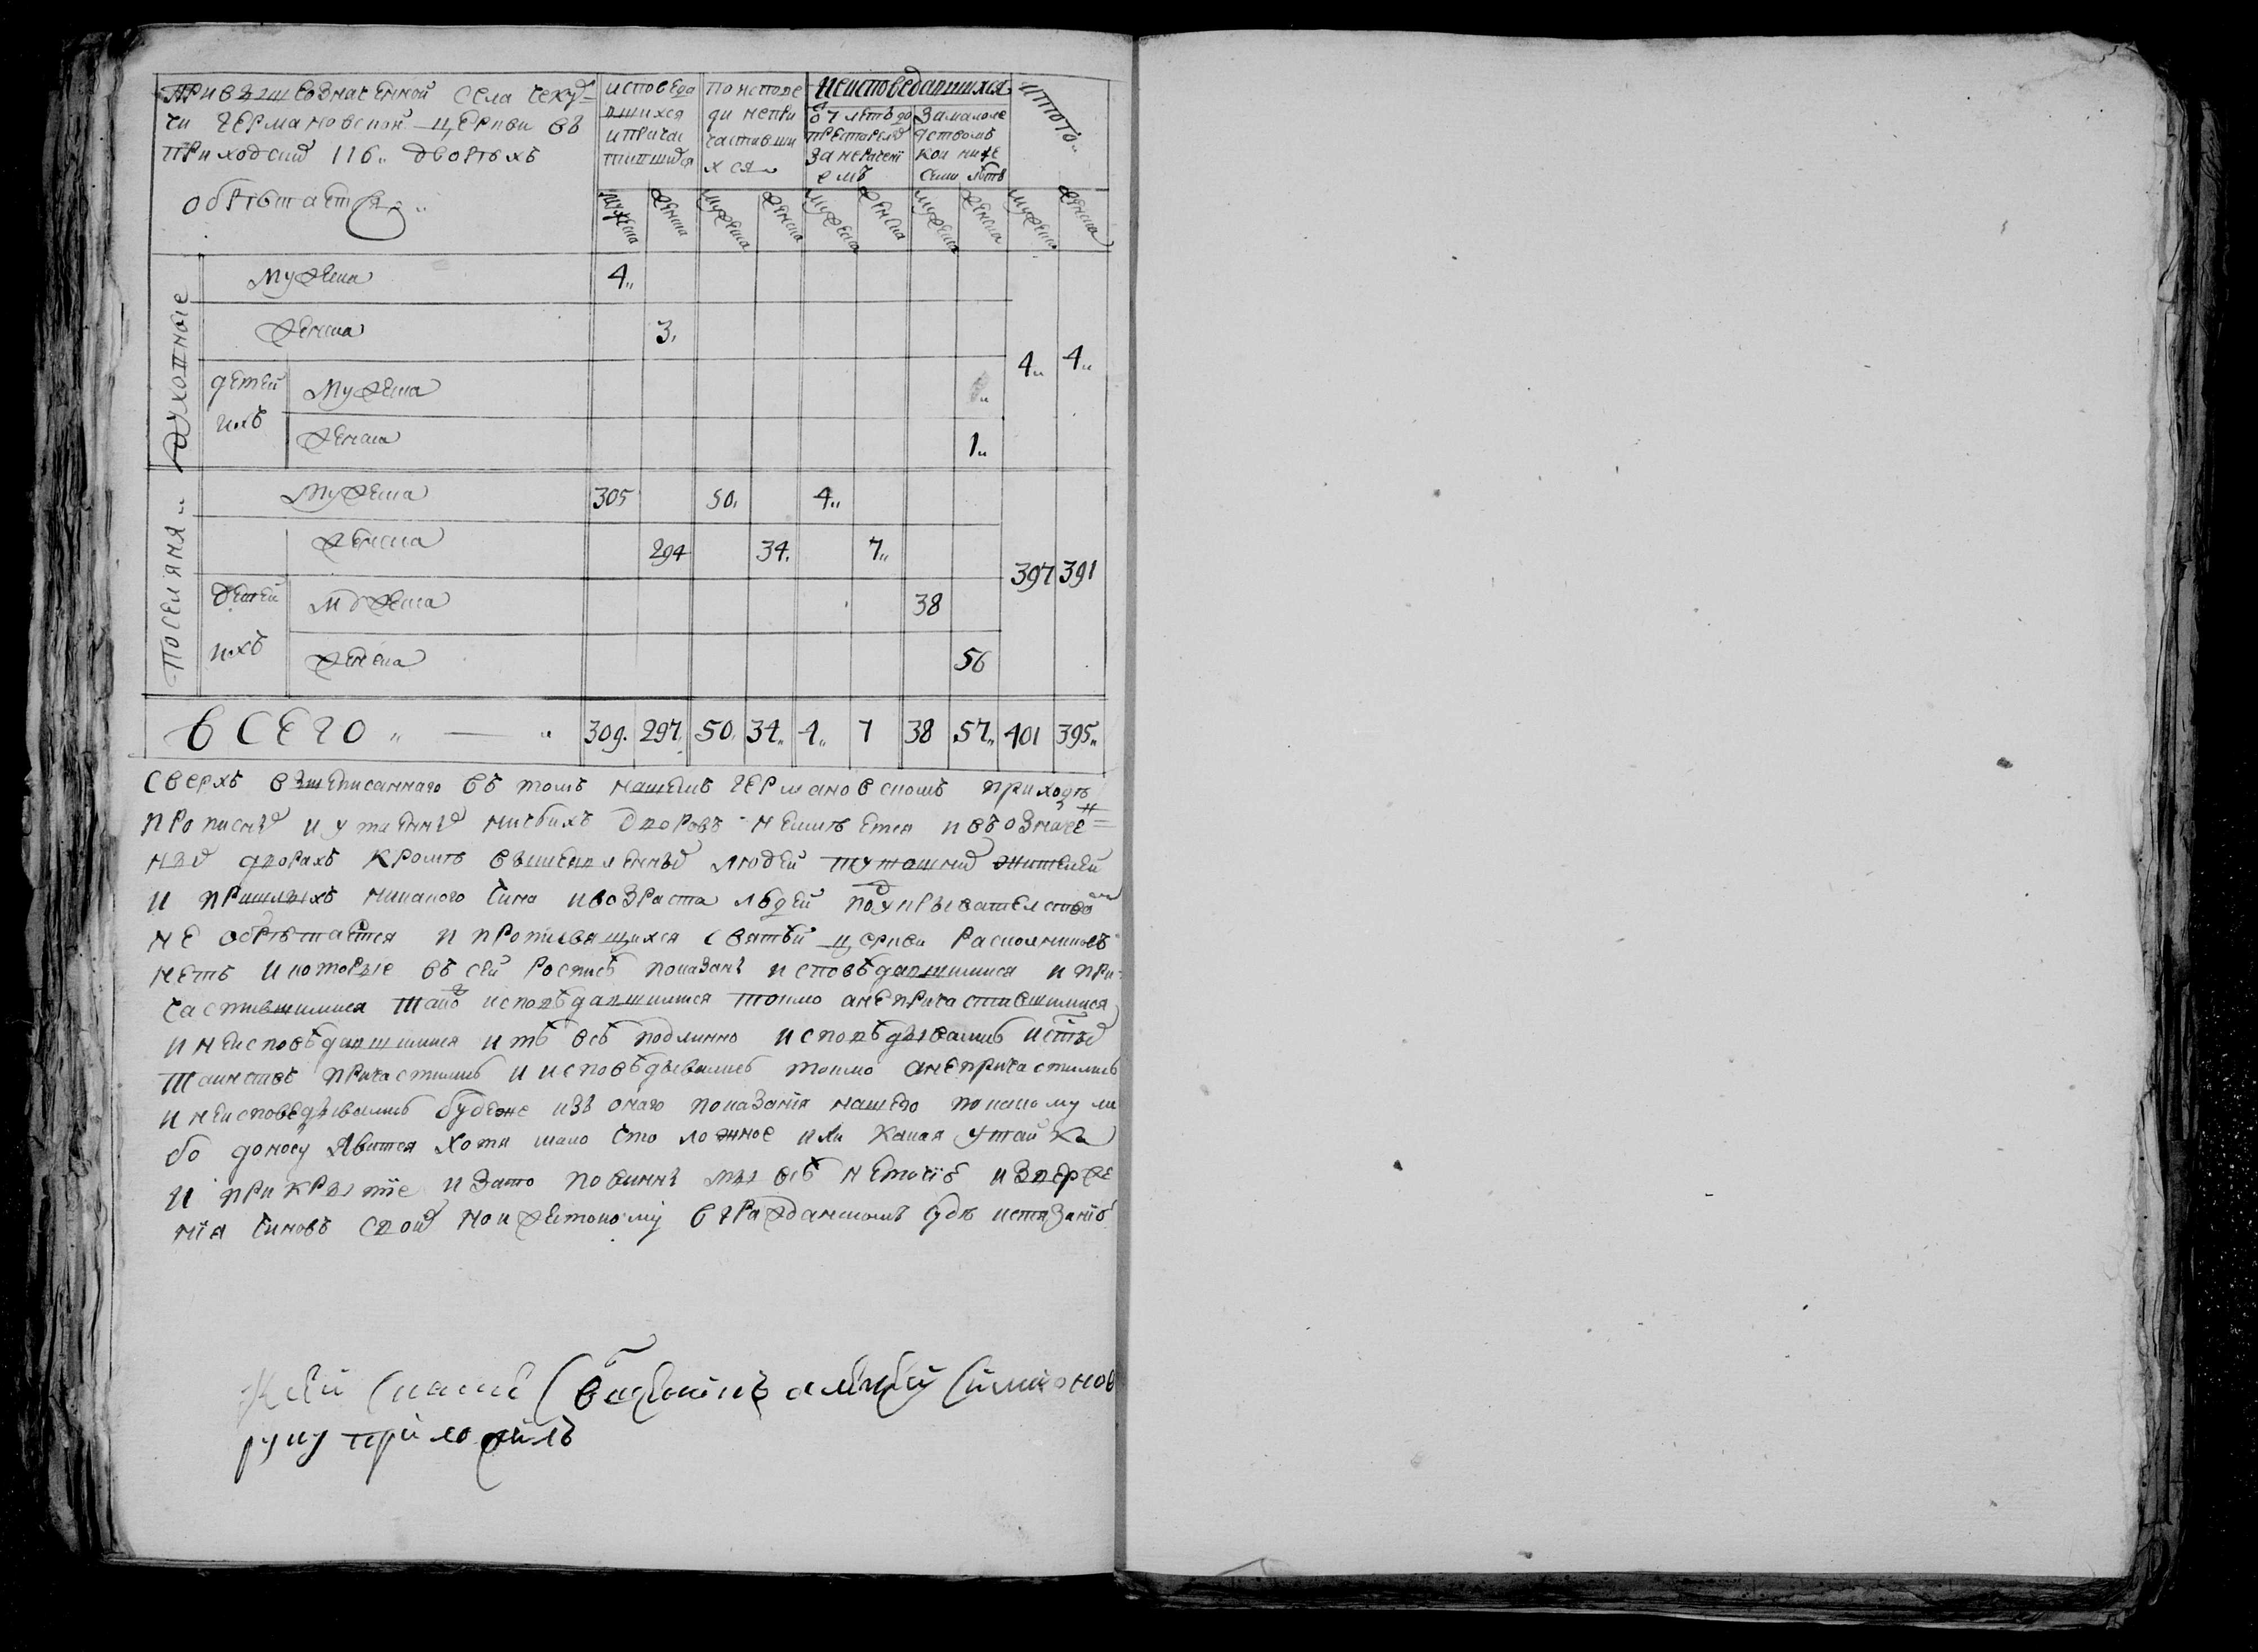 При вышеозначенной села секу=
чи германовской церкви въ
приходских 116 дворѣхъ
обрѣтается
исповеда
вшихся
и причас
тившихся
по исповѣ
ди непри
частивши
хся
Неисповедавшихся
от 7 лѣтъ до
престарелых
за нерачені
емъ
За малоле
дствомъ
кои ниже
семи лѣтъ
итого
мужеска женска мужеска женска мужеска женска мужеска женска мужеска женска
Духовные
мужеска 4
женска 3
4 4
детей ихъ мужеска
женска 1
Поселяня
мужеска 305 50 4
женска 294 34 7
397 391
детей ихъ мужеска 38
женска 56
ВСЕГО 309 297 50 34 4 7 38 57 401 395
сверхъ вышеписаннаго въ томъ нашемъ германовскомъ приходѣ
прописных и утаенных никакихъ дворовъ неимѣется и въ означен=
ных дворахъ кромѣ вышеявленных людей тутошних жителей
и пришлыхъ никакого чина и возраста людей по укрывателству
не обрѣтается и противящихся святѣй церкви расколниковъ
нетъ и которые въ сей росписѣ показаны исповѣдавшимися и при
частившимися тако исповѣдавшимися токмо а не причастившимися
и неисповѣдавшимися и тѣ всѣ подлинно исповѣдывались и стых
таинствъ причастились и исповѣдывались токмо а не причастились
и неисповедывались буде же изъ онаго показанія нашего по какому ли
бо доносу явится хотя мало что ложное или какая утайка
и прикрытіе и за то повинны мы всѣ не точію извержє
нія чиновъ своих но и жестокому в гражданскомъ судѣ истязанію
К сей
руку приложилъ